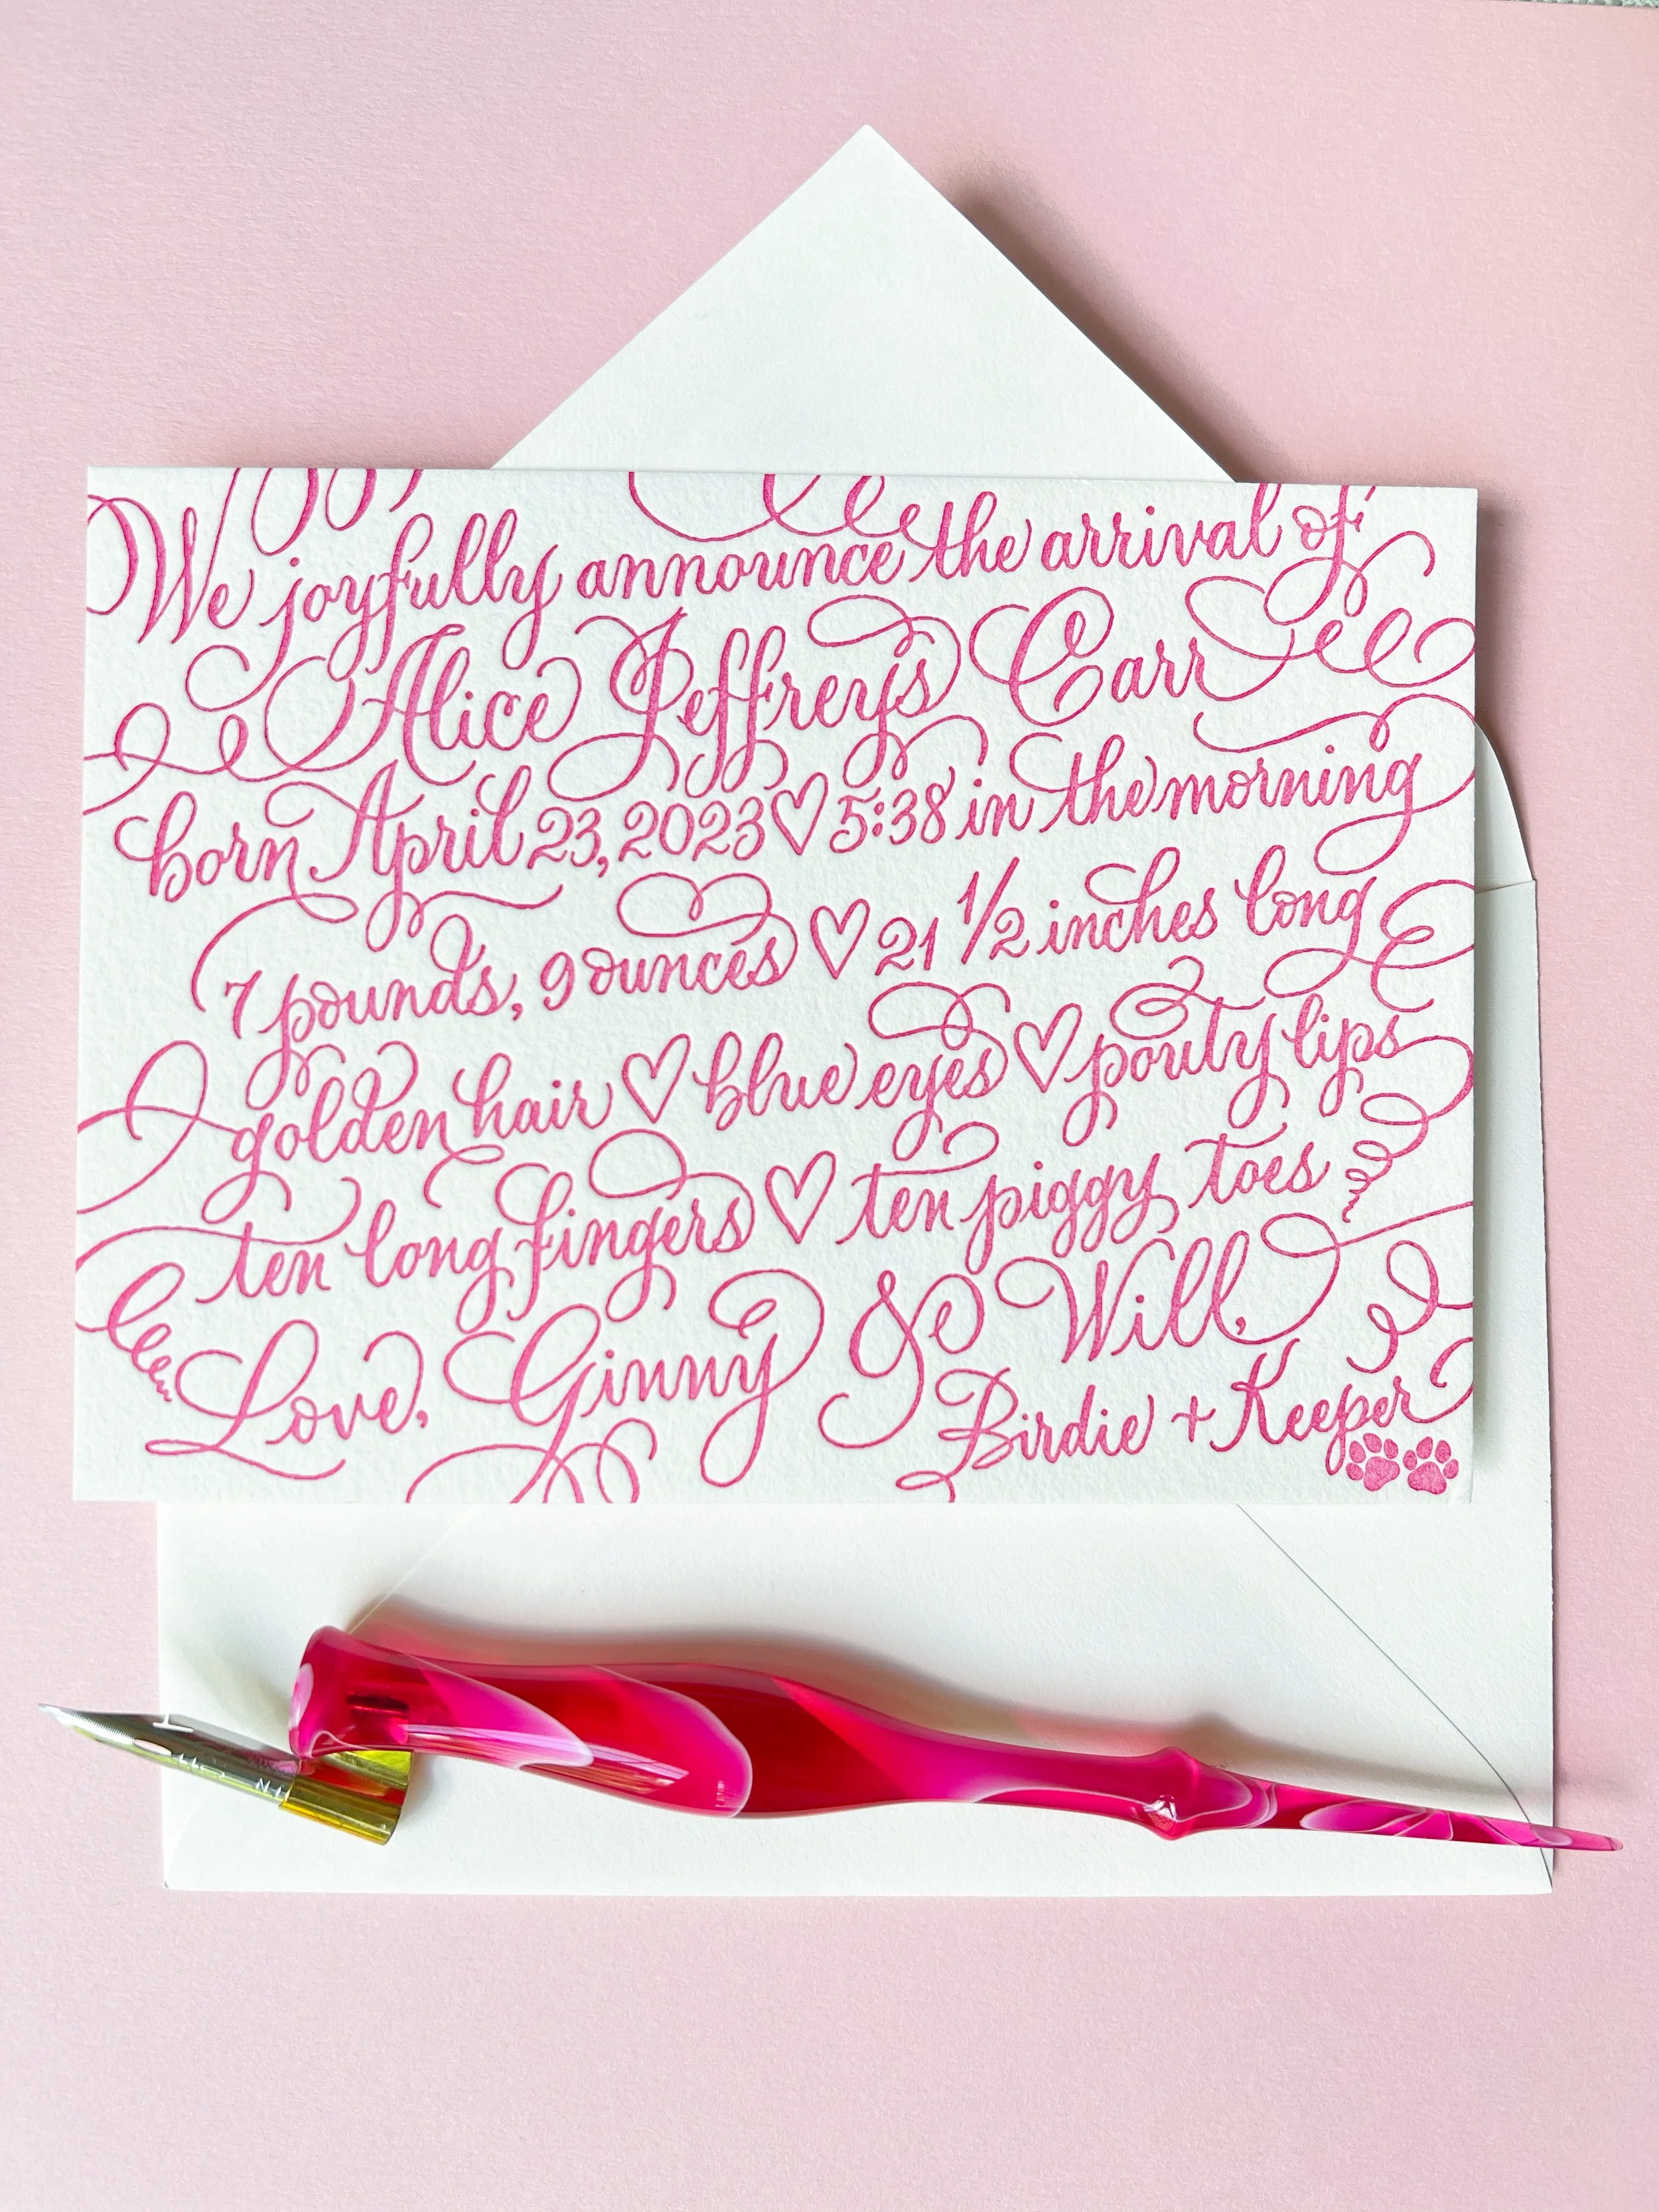 We joyfully announce the arrival of
Alice Jeffreys Carr
born April 23, 2023 ♡ 5:38 in the morning
7 pounds, 9 ounces ♡ 21 1/2 inches long
golden hair ♡ blue eyes ♡ pouty lips
ten long fingers ♡ ten piggy toes
Love, Ginny & Will,
Birdie + Keeper